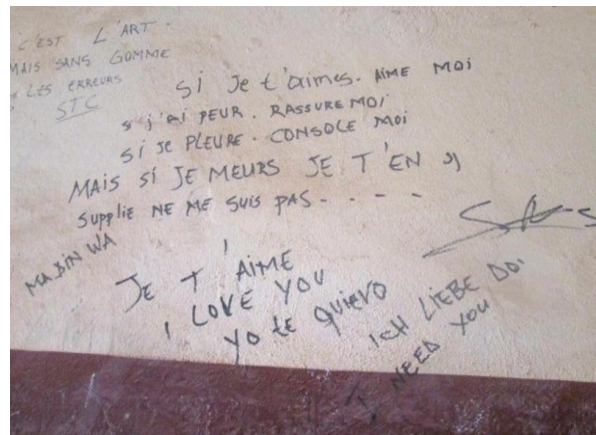 C'EST L'ART.
MAIS SANS GOMME
LES ERREURS
STC
Si Je t'aimes. AIME MOI
s j'ai PEUR. RASSURE MOI
Si Je PLEURE. CONSOLE MOI
MAIS Si JE MEURS JE T'EN
supplie NE ME SUIS PAS - - - -
MABIN WA
JE T'AIME
I LOVE YOU
YO te quiero
ICH LIEBE DOI
I NEED YOU